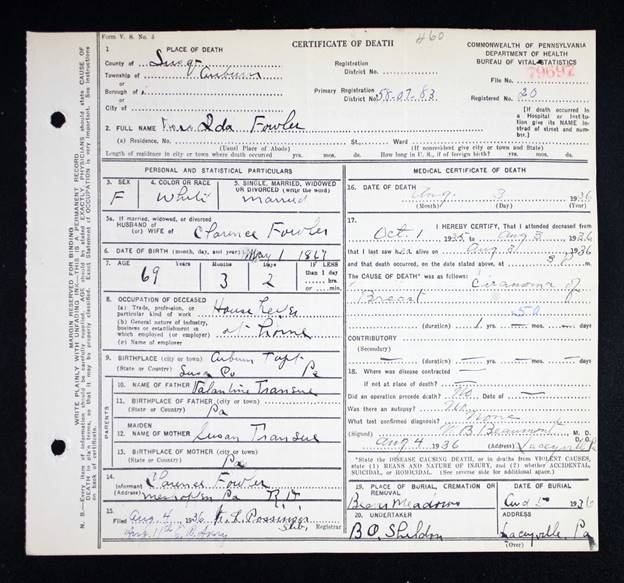 Form V. S. No. 5
CERTIFICATE OF DEATH
460
COMMONWEALTH OF PENNSYLVANIA
DEPARTMENT OF HEALTH
BUREAU OF VITAL STATISTICS
1 PLACE OF DEATH
County of Susq
Township of Auburn
Borough of
City of
Registration District No.
Primary Registration District No. 58-07-83
File No. 79697
Registered No. 20
[If death occurred in a Hospital or Institution give its NAME instead of street and number.]
2. FULL NAME Mrs Ida Fowler
(a) Residence, No. St., Ward
(Usual Place of Abode) (If nonresident give city or town and State)
Length of residence in city or town where death occurred yrs. mos. ds. How long in U. S., if of foreign birth? yrs. mos. ds.
PERSONAL AND STATISTICAL PARTICULARS
3. SEX F
4. COLOR OR RACE White
5. SINGLE, MARRIED, WIDOWED OR DIVORCED (write the word) Married
5a. If married, widowed, or divorced
HUSBAND of
(or) WIFE of Clarence Fowler
6. DATE OF BIRTH (month, day, and year) May 1 1867
7. AGE 69 Years 3 Months 2 Days If LESS than 1 day hrs. or min.
8. OCCUPATION OF DECEASED
(a) Trade, profession, or particular kind of work House Wife
(b) General nature of industry, business or establishment in which employed (or employer) at home
(c) Name of employer
9. BIRTHPLACE (city or town) Auburn Twp
(State or Country) Susq Co Pa
PARENTS
10. NAME OF FATHER Valentine Transue
11. BIRTHPLACE OF FATHER (city or town)
(State or Country) Pa
12. MAIDEN NAME OF MOTHER Susan Transue
13. BIRTHPLACE OF MOTHER (city or town)
(State or Country) Pa
14. Informant Clarence Fowler
(Address) Meshoppen Pa R.D.
15. Filed Aug 4 1936 Registrar
MEDICAL CERTIFICATE OF DEATH
16. DATE OF DEATH Aug. 3 1936
(Month) (Day) (Year)
17. I HEREBY CERTIFY, That I attended deceased from
Oct. 1 1935 to Aug 3 1936
that I last saw her alive on Aug 2 1936
and that death occurred, on the date stated above, at m.
The CAUSE OF DEATH* was as follows:
Breast
50
(duration) 1 yrs. mos. ds.
CONTRIBUTORY
(Secondary)
(duration) yrs. mos. ds.
18. Where was disease contracted
if not at place of death?
Did an operation precede death? No Date of
Was there an autopsy?
What test confirmed diagnosis? None
(Signed) W. B. Beaumont M. D.
Aug 4 1936 (Address) Laceyville Pa
*State the DISEASE CAUSING DEATH, or in deaths from VIOLENT CAUSES, state (1) MEANS AND NATURE OF INJURY, and (2) whether ACCIDENTAL, SUICIDAL, or HOMICIDAL. (See reverse side for additional space.)
19. PLACE OF BURIAL, CREMATION OR REMOVAL DATE OF BURIAL
Meadows Aug 5 1936
20. UNDERTAKER ADDRESS
B O. Sheldon Laceyville, Pa
(Over)
MARGIN RESERVED FOR BINDING
WRITE PLAINLY WITH UNFADING INK—THIS IS A PERMANENT RECORD